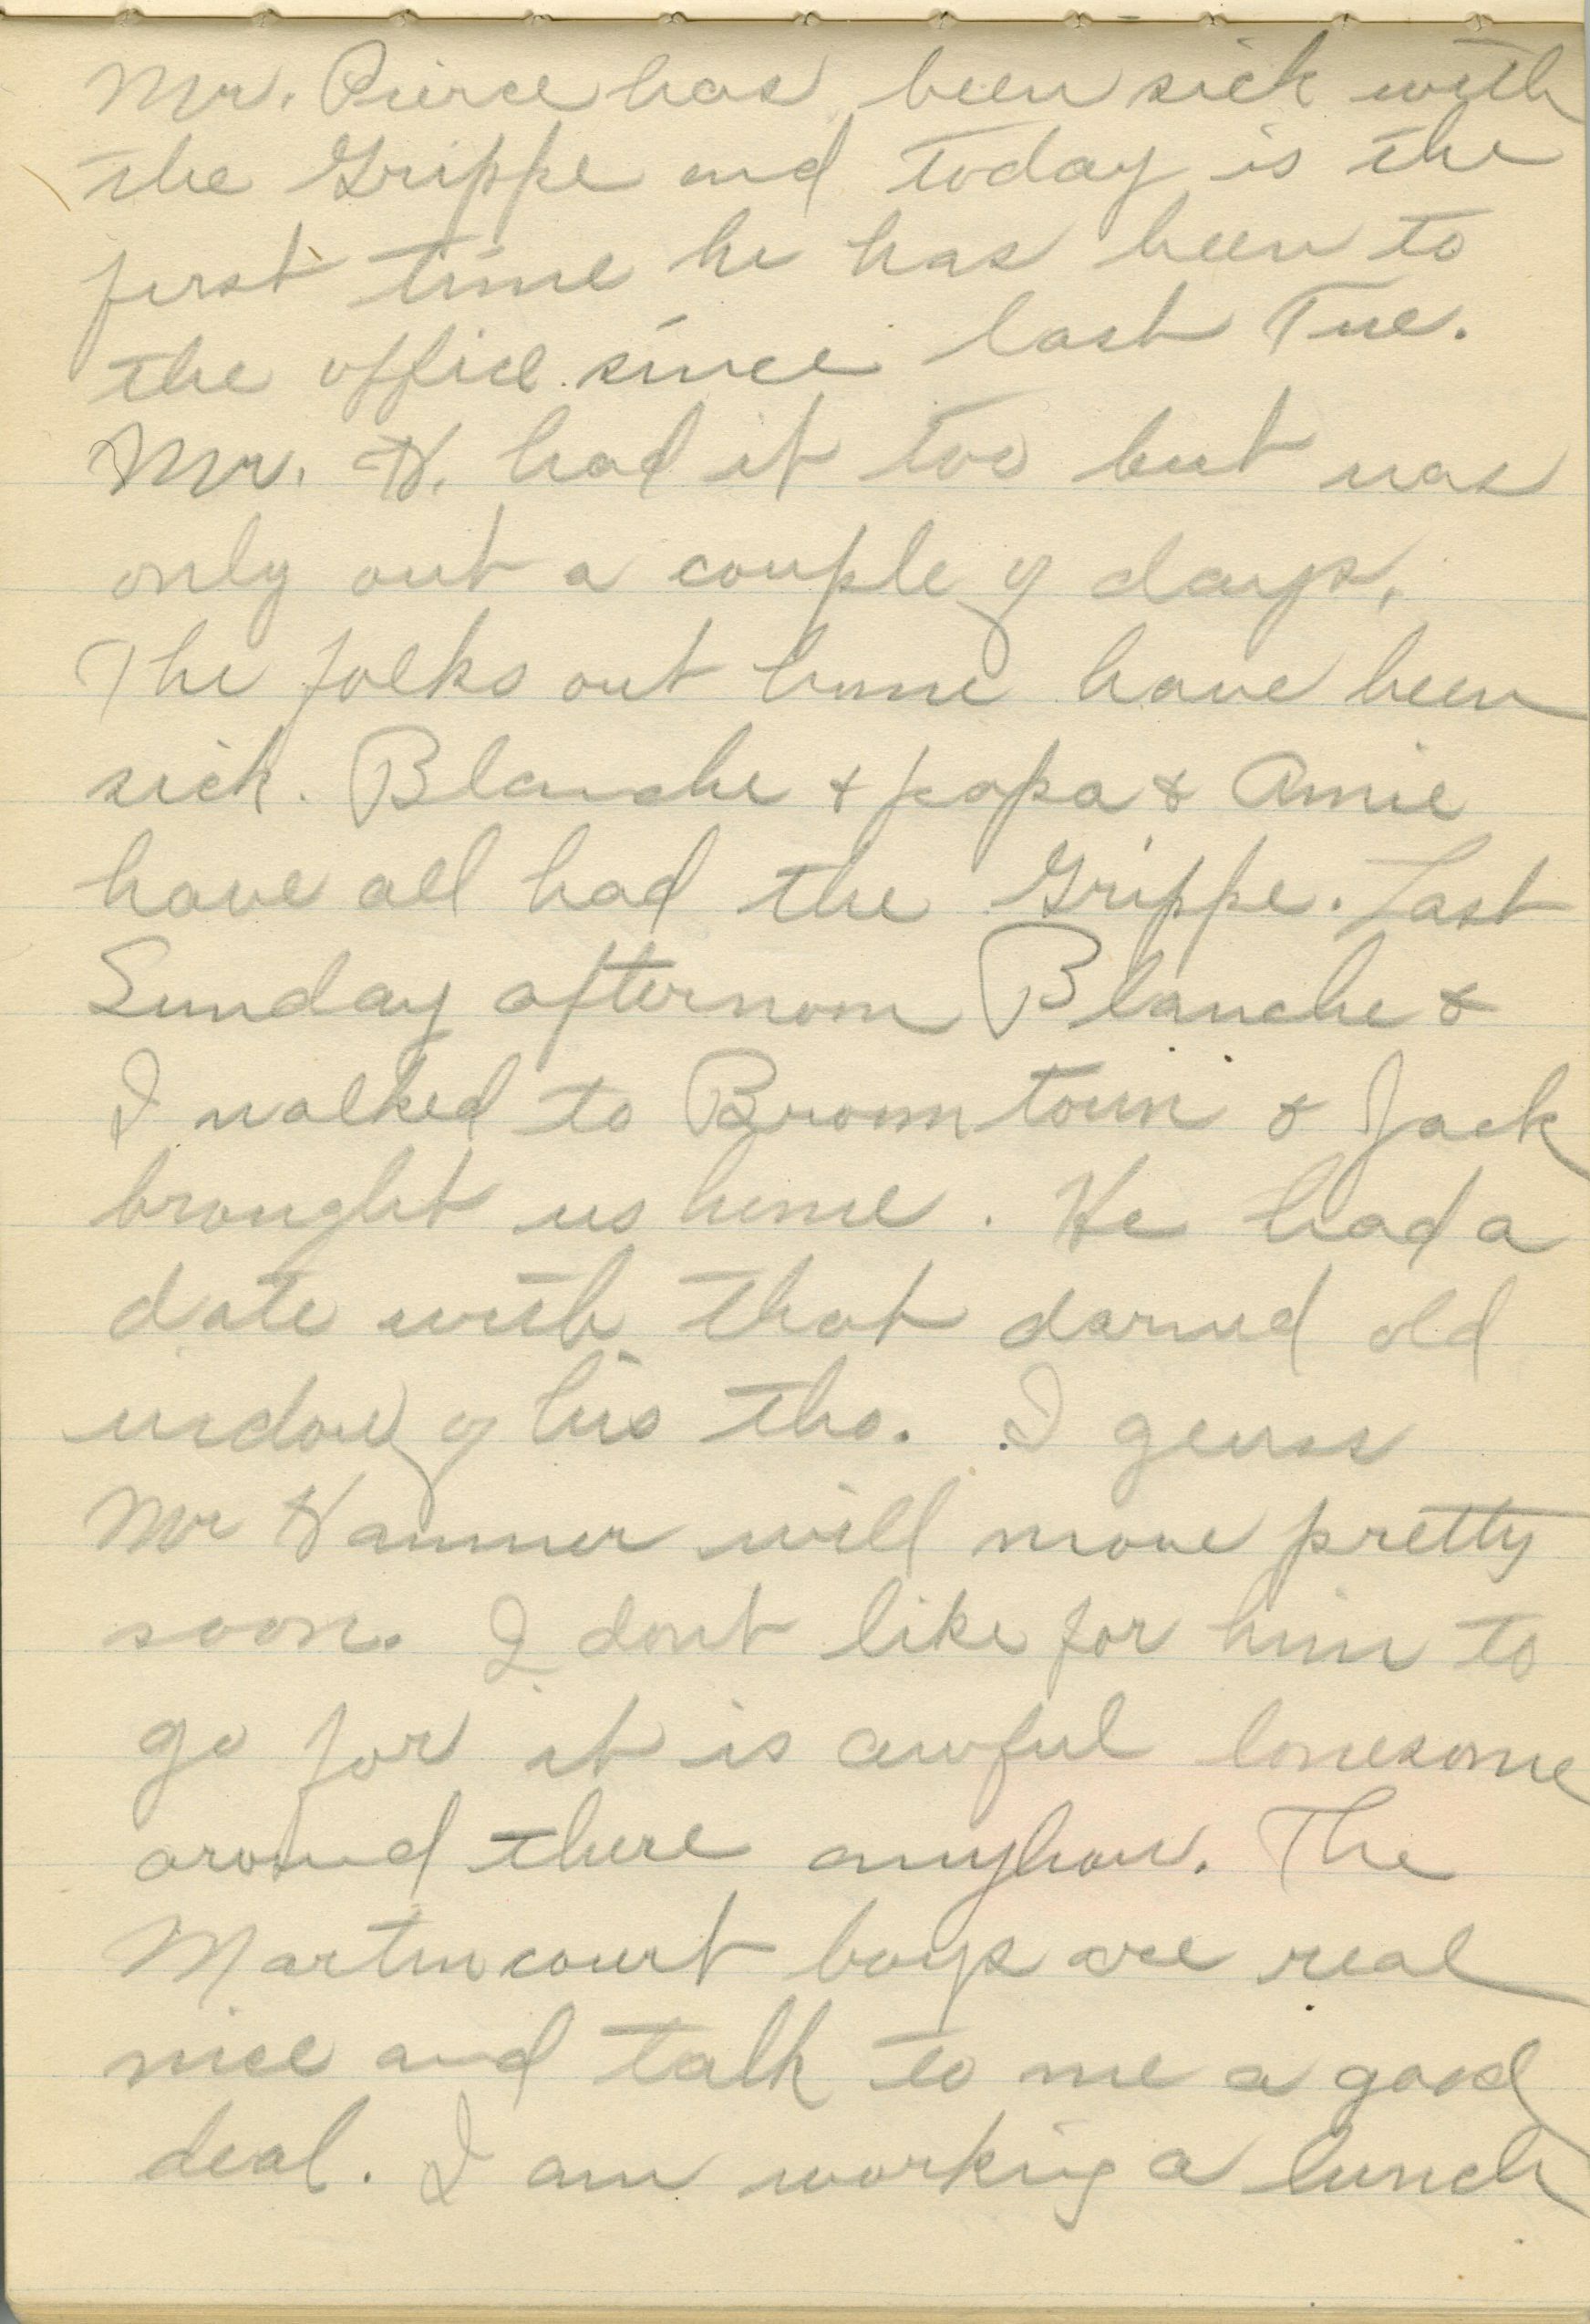 Mr. Pierce has been sick with
the Grippe and today is the
first time he has been to
the office since last Tue.
Mr. H. had it too but was
only out a couple of days.
The folks out home have been
sick. Blanche & papa & Amie
have all had the Grippe. Last
Sunday afternoon Blanche &
I walked to Browntown & Jack
brought us home. He had a
date with that darned old
widow of his tho. I guess
Mr Hammer will move pretty
soon. I dont like for him to
go for it is awful lonesome
around there anyhow. The
Martincourt boys are real
nice and talk to me a good
deal. I am working a lunch